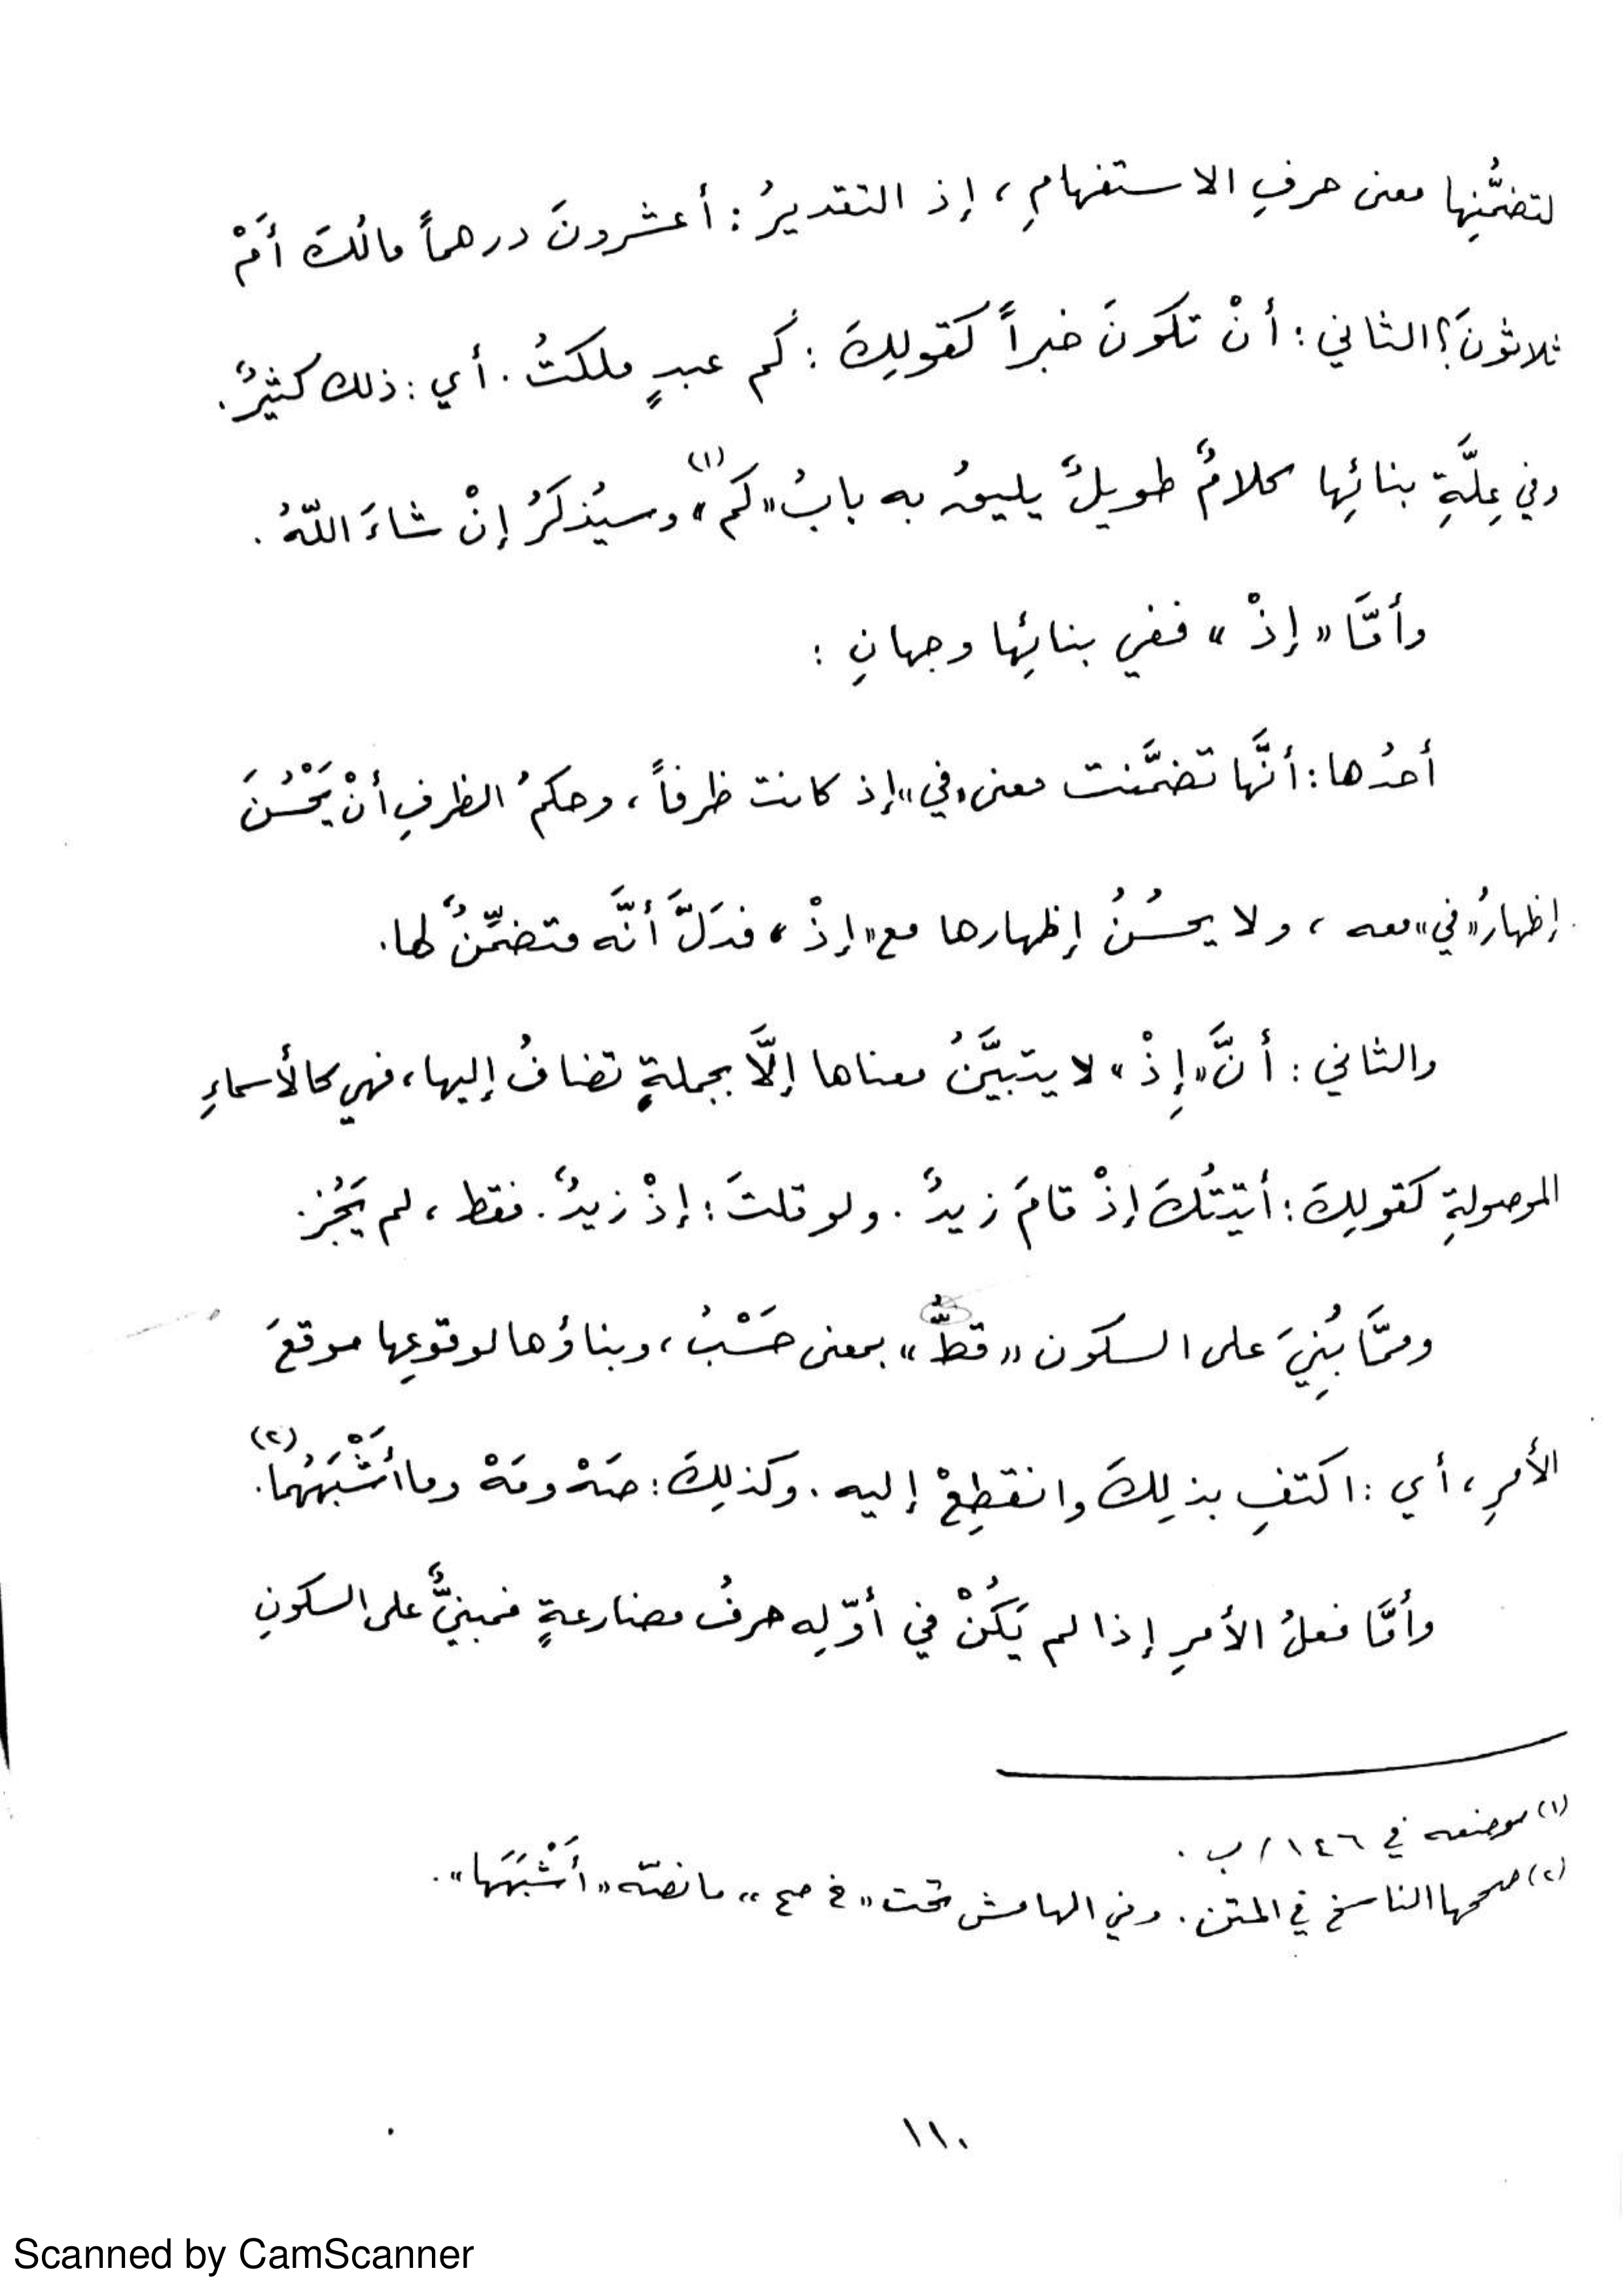 لتضمُّنِها معنى حرفِ الاستفهامِ، إذ التقديرُ: أعشرونَ درهماً مالُكَ أَمْ
ثلاثونَ؟ الثاني: أنْ تكونَ خبراً كقولِكَ: كَم عبدٍ ملكتُ. أي: ذلك كثيرٌ.
وفي عِلَّةِ بنائِها كلامٌ طويلٌ يليقُ به بابُ «كَم»(١) وسيُذكَرُ إنْ شاءَ اللّهُ.
وأمَّا «إذْ» ففي بنائِها وجهانِ:
أحدُها: أنَّها تضمَّنت معنى «في» إذ كانت ظرفاً، وحكمُ الظرفِ أنْ يَحْسُنَ
إظهارُ «في» معه، ولا يحسُنُ إظهارها مع «إذْ» فدَلَّ أنَّه متضمِّنٌ لها.
والثاني: أنَّ «إِذْ» لا يتبيَّنُ معناها إلَّا بجملةٍ تضافُ إليها، فهي كالأسماءِ
الموصولةِ كقولِكَ: أتيتُكَ إذْ قامَ زيدٌ. ولو قلتَ: إذْ زيدٌ. فقط، لم يَجُز.
وممَّا بُنِيَ على السكون «قطُّ» بمعنى حَسْبُ، وبناؤها لوقوعِها موقعَ
الأمرِ، أي: اكتفِ بذلِكَ وانقطِعْ إليه. وكذلِكَ: صَهْ ومَهْ وما أَشْبَهَهُما(٢).
وأمَّا فعلُ الأمرِ إذا لم يَكُنْ في أوّلِه حرفُ مضارعةٍ فمبنيٌّ على السكونِ
(١) موضعه في ١٤٦/ب.
(٢) صححها الناسخ في المتن. وفي الهامش تحت «خ صح» ما نصّه «أَشْبَهَها».
١١٠
Scanned by CamScanner